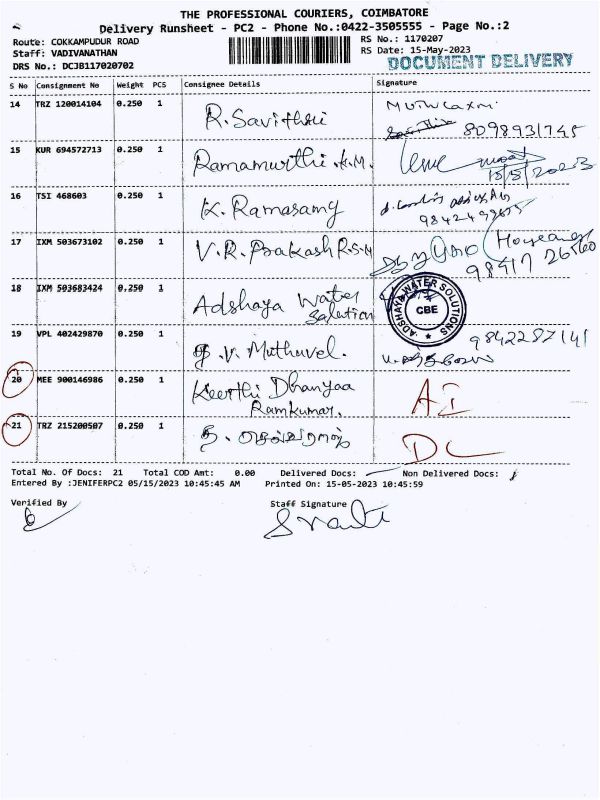 THE PROFESSIONAL COURIERS, COIMBATORE
Delivery Runsheet - PC2 - Phone No.:0422-3505555 - Page No.:2
Route: COKKAMPUDUR ROAD RS No.: 1170207
Staff: VADIVANATHAN RS Date: 15-May-2023
DRS No.: DCJB117020702 DOCUMENT DELIVERY
S No Consignment No Weight PCS Consignee Details Signature
14 TRZ 120014104 0.250 1 R. Savithri
8098931745
15 KUR 694572713 0.250 1 Ramamurthi .K.M.
15/5/2023
16 TSI 468603 0.250 1 K. Ramasamy
17 IXM 503673102 0.250 1 V.R. Prakash R.S.M
98417 26560
18 IXM 503683424 0.250 1 Adshaya Water Salution
ADSHAYA WATER SOLUTIONS
CBE
19 VPL 402429870 0.250 1 V. Muthuvel.
9842287141
20 MEE 900146986 0.250 1 Keerthi Dhanyaa
Ramkumar.
21 TRZ 215200507 0.250 1 DL
Total No. Of Docs: 21 Total COD Amt: 0.00 Delivered Docs: Non Delivered Docs:
Entered By :JENIFERPC2 05/15/2023 10:45:45 AM Printed On: 15-05-2023 10:45:59
Verified By Staff Signature